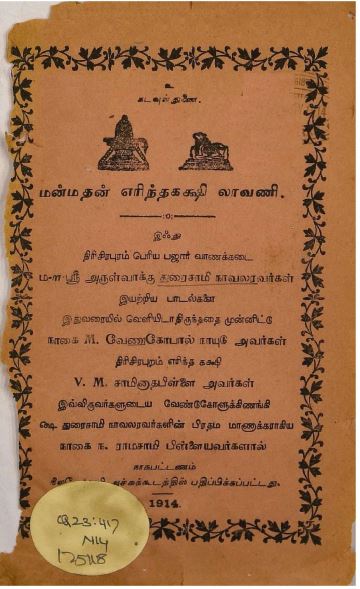 உ
கடவுள்துணை.
மன்மதன் எரிந்தகக்ஷி லாவணி.
இஃது
திரிசிரபுரம் பெரிய பஜார் வாணக்கடை
ம-ள-ஸ்ரீ அருள்வாக்கு துரைசாமி நாவலரவர்கள்
இயற்றிய பாடல்களை
இதுவரையில் வெளியிடாதிருந்ததை முன்னிட்டு
நாகை M. வேணுகோபால் நாயுடு அவர்கள்
திரிசிரபுரம் எரிந்த கக்ஷி
V. M. சாமிநாதபிள்ளை அவர்கள்
இவ்விருவர்களுடைய வேண்டுகோளுக்கிணங்கி
௸ துரைசாமி நாவலரவர்களின் பிரதம மாணாக்கராகிய
நாகை ந. ராமசாமி பிள்ளையவர்களால்
நாகபட்டணம்
அச்சுக்கூடத்தில் பதிப்பிக்கப்பட்டது.
1914.
Q23:417
N14
125118